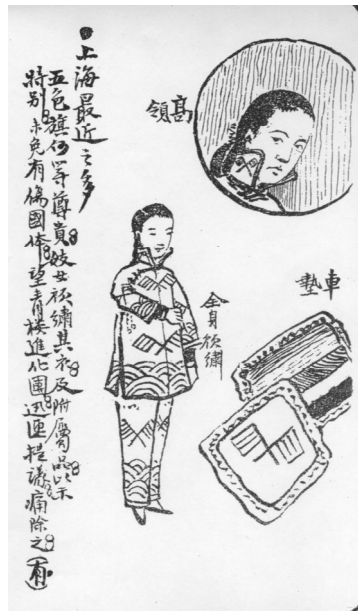 高領
車墊
全身刺繡
●上海最近之多
五色旗何等尊貴妓女刺繡其衣及附屬品以示
特別未免有傷國体望青樓進化團迅速提議痛除之